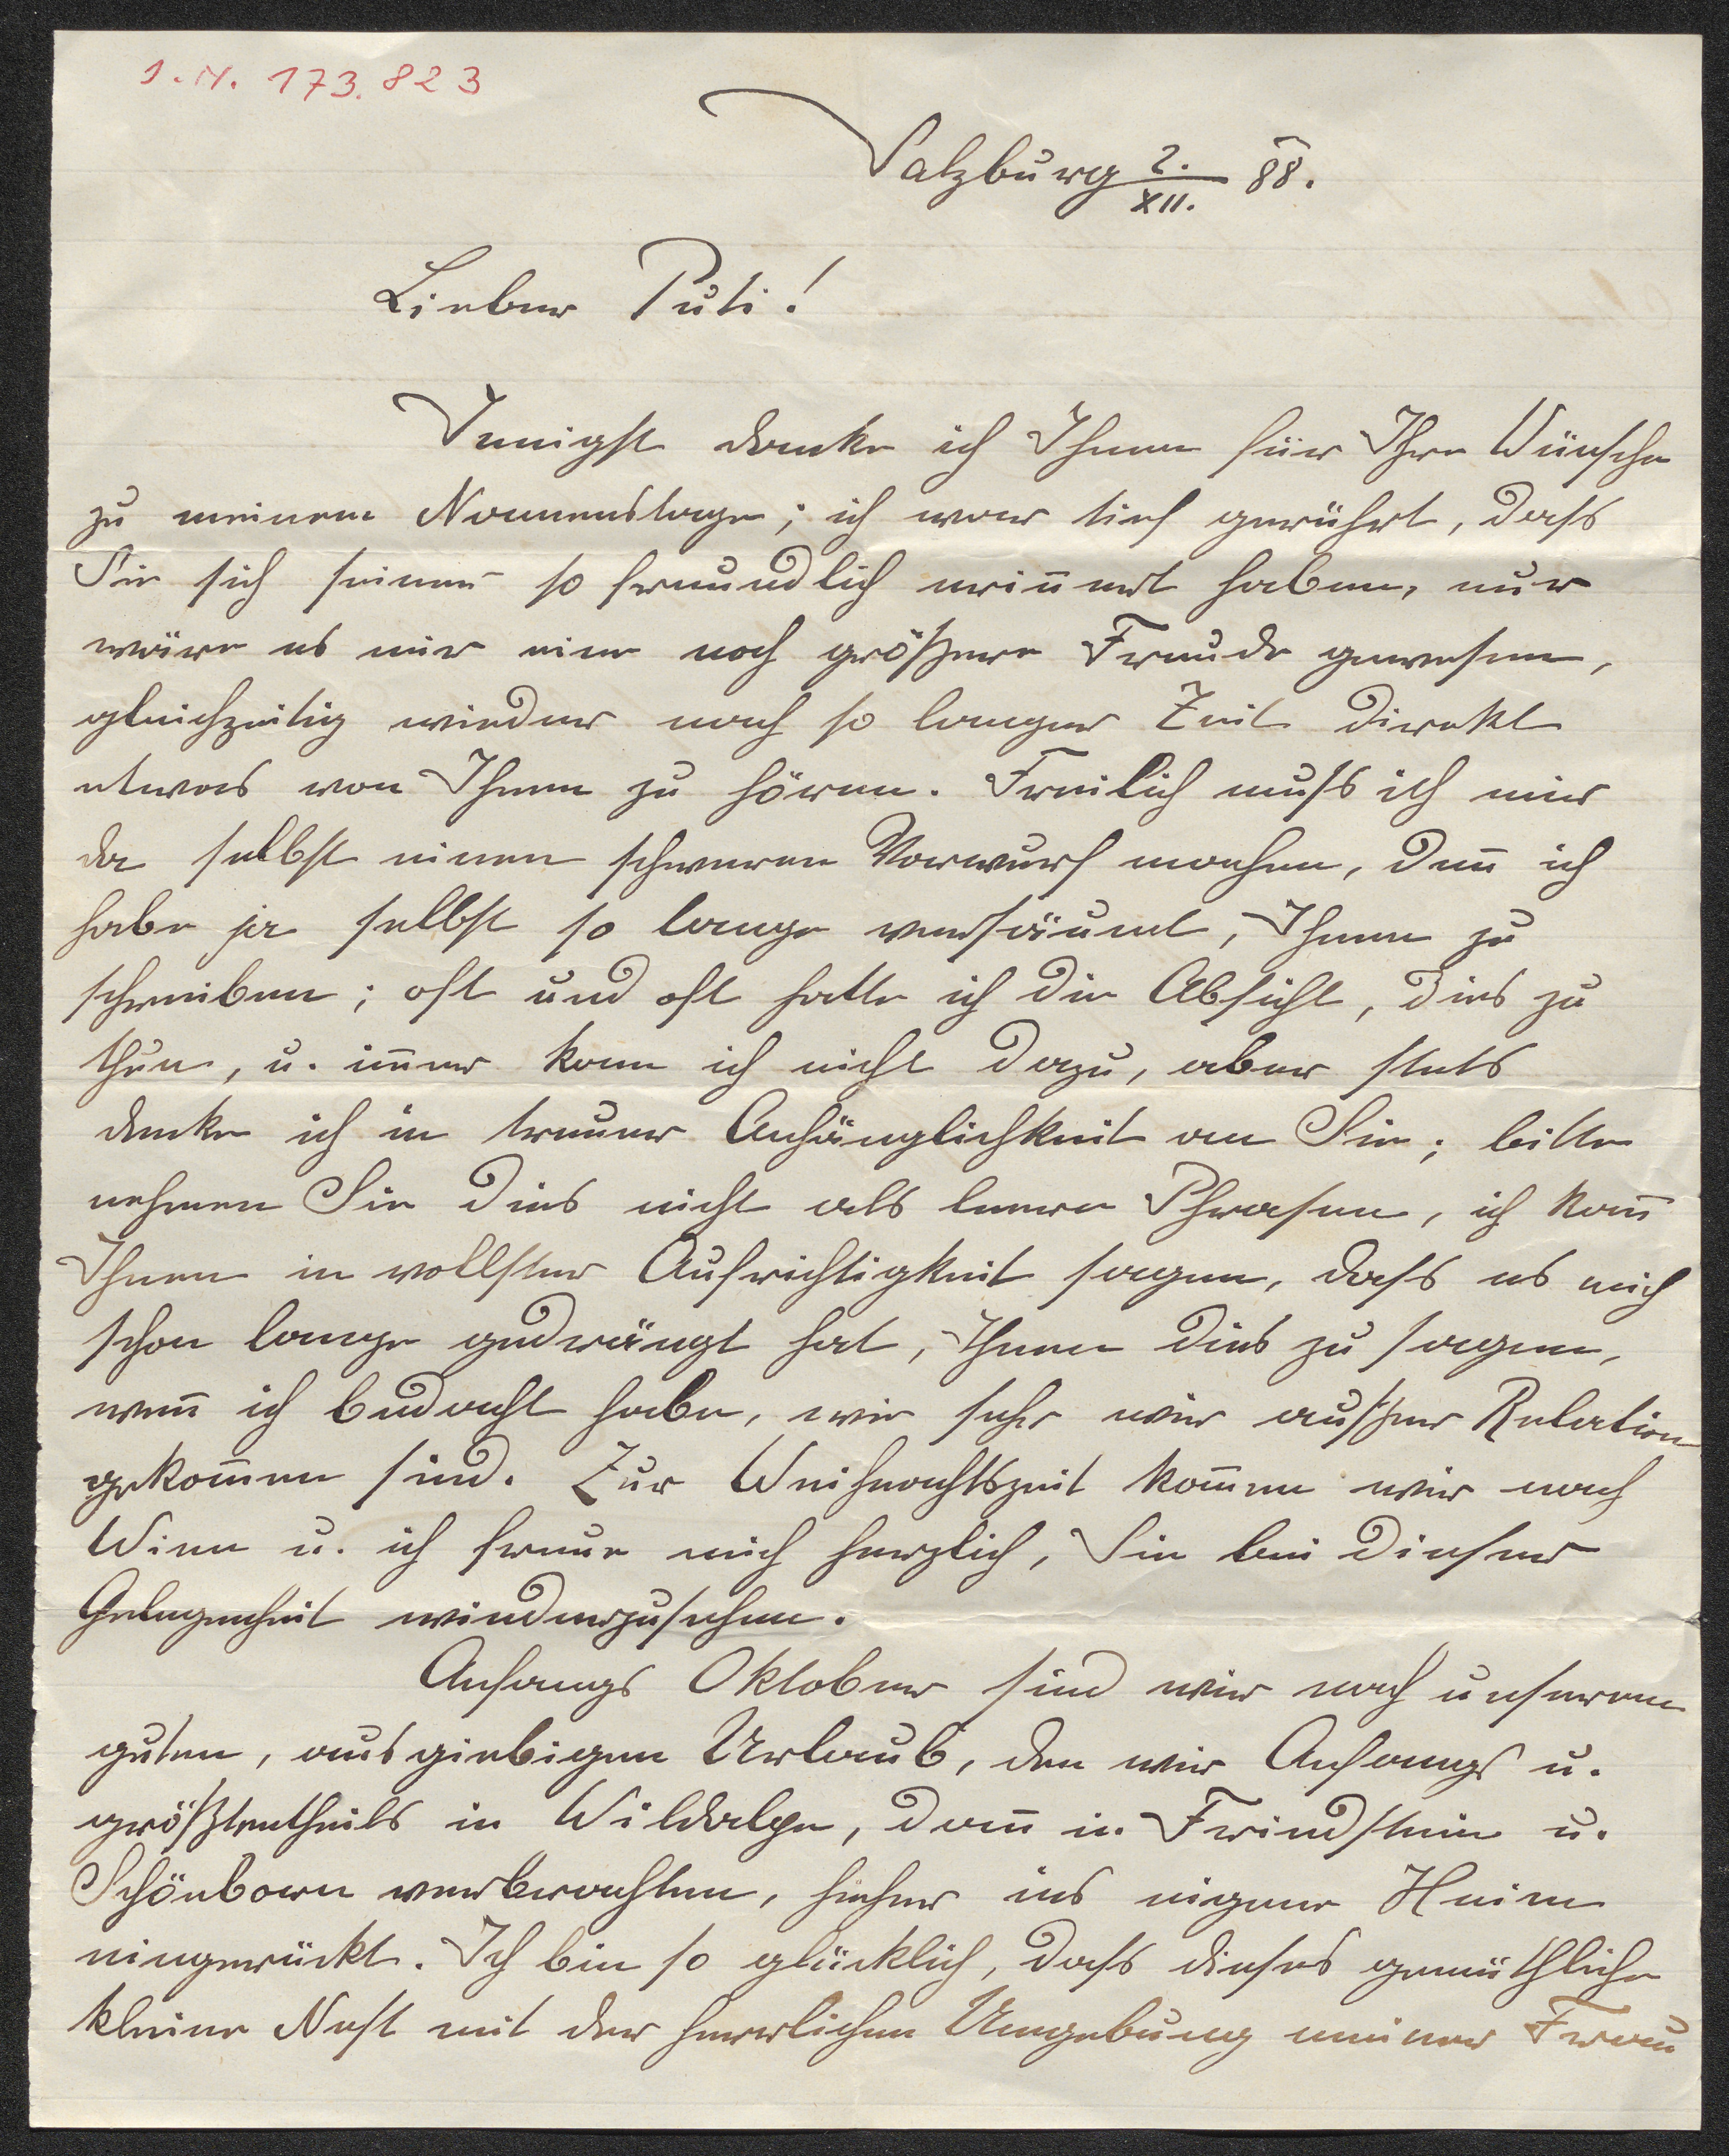 I.N. 173.823
Salzburg 2./XII. 88.
Lieber Puti!
Innigst danke ich Ihnen für Ihre Wünsche
zu meinem Namenstage; ich war tief gerührt, dass
Sie sich seiner so freundlich erin̄ert haben, nur
wäre es mir eine noch größere Freude gewesen,
gleichzeitig wieder nach so langer Zeit direkt
etwas von Ihnen zu hören. Freilich muss ich mir
da selbst einen schweren Vorwurf machen, den̄ ich
habe ja selbst so lange versäumt, Ihnen zu
schreiben; oft und oft hatte ich die Absicht, dies zu
thun, u. im̄er kam ich nicht dazu, aber stets
denke ich in treuer Anhänglichkeit an Sie; bitte
nehmen Sie dies nicht als leere Phrasen, ich kan̄
Ihnen in vollster Aufrichtigkeit sagen, dass es mich
schon lange gedrängt hat, Ihnen dies zu sagen,
wen̄ ich bedacht habe, wie sehr wir außer Relation
gekom̄en sind. Zur Weihnachtszeit kom̄en wir nach
Wien u. ich freue mich herzlich, Sie bei dieser
Gelegenheit wiederzusehen.
Anfangs Oktober sind wir nach unserem
guten, ausgiebigen Urlaub, den wir Anfangs u.
größtentheils in Wildalpe, dan̄ in Friedstein u.
Schönborn verbrachten, hieher ins eigene Heim
eingerückt. Ich bin so glücklich, dass dieses gemüthliche
kleine Nest mit der herrlichen Umgebung meiner Frau